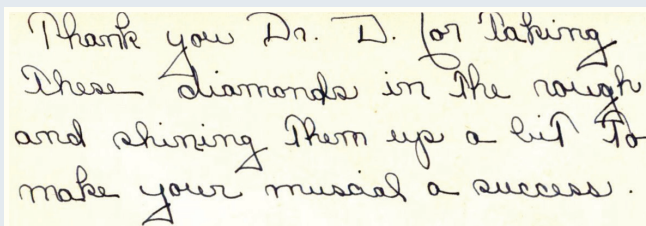 Thank you Dr. D. for taking
these diamonds in the rough
and shining them up a bit to
make your muscial a success.